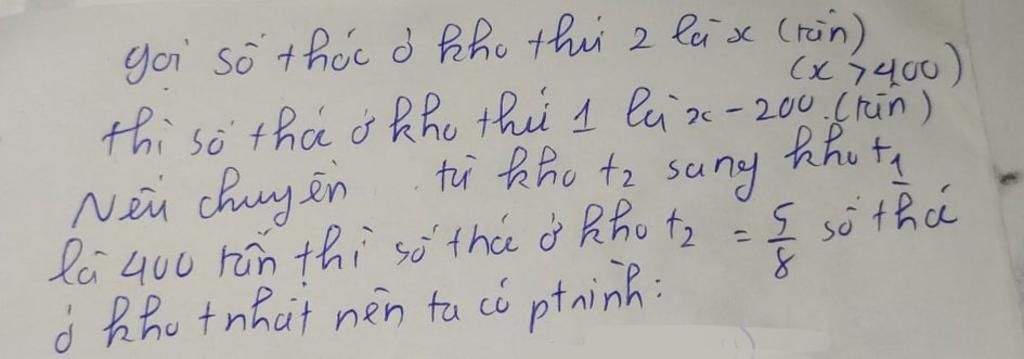 gọi số thóc ở kho thứ 2 là x (tấn)
(x > 400)
thì số thóc ở kho thứ 1 là x - 200 (tấn)
Nếu chuyển từ kho t2 sang kho t1
là 400 tấn thì số thóc ở kho t2 = 5/8 số thóc
ở kho t nhất nên ta có ptrình: